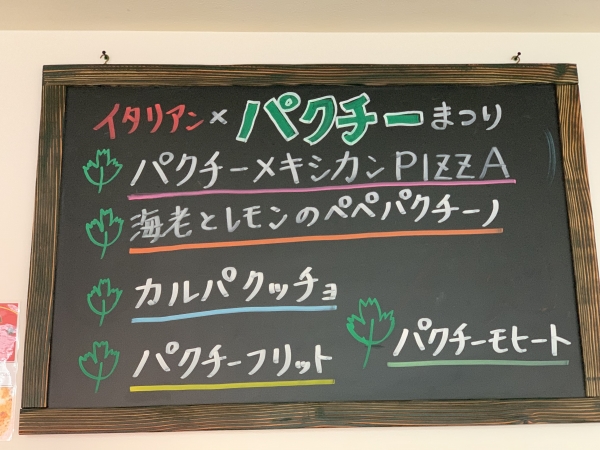 イタリアン×パクチーまつり
パクチーメキシカンPIZZA
海老とレモンのペペパクチーノ
カルパクッチョ
パクチーフリット
パクチーモヒート